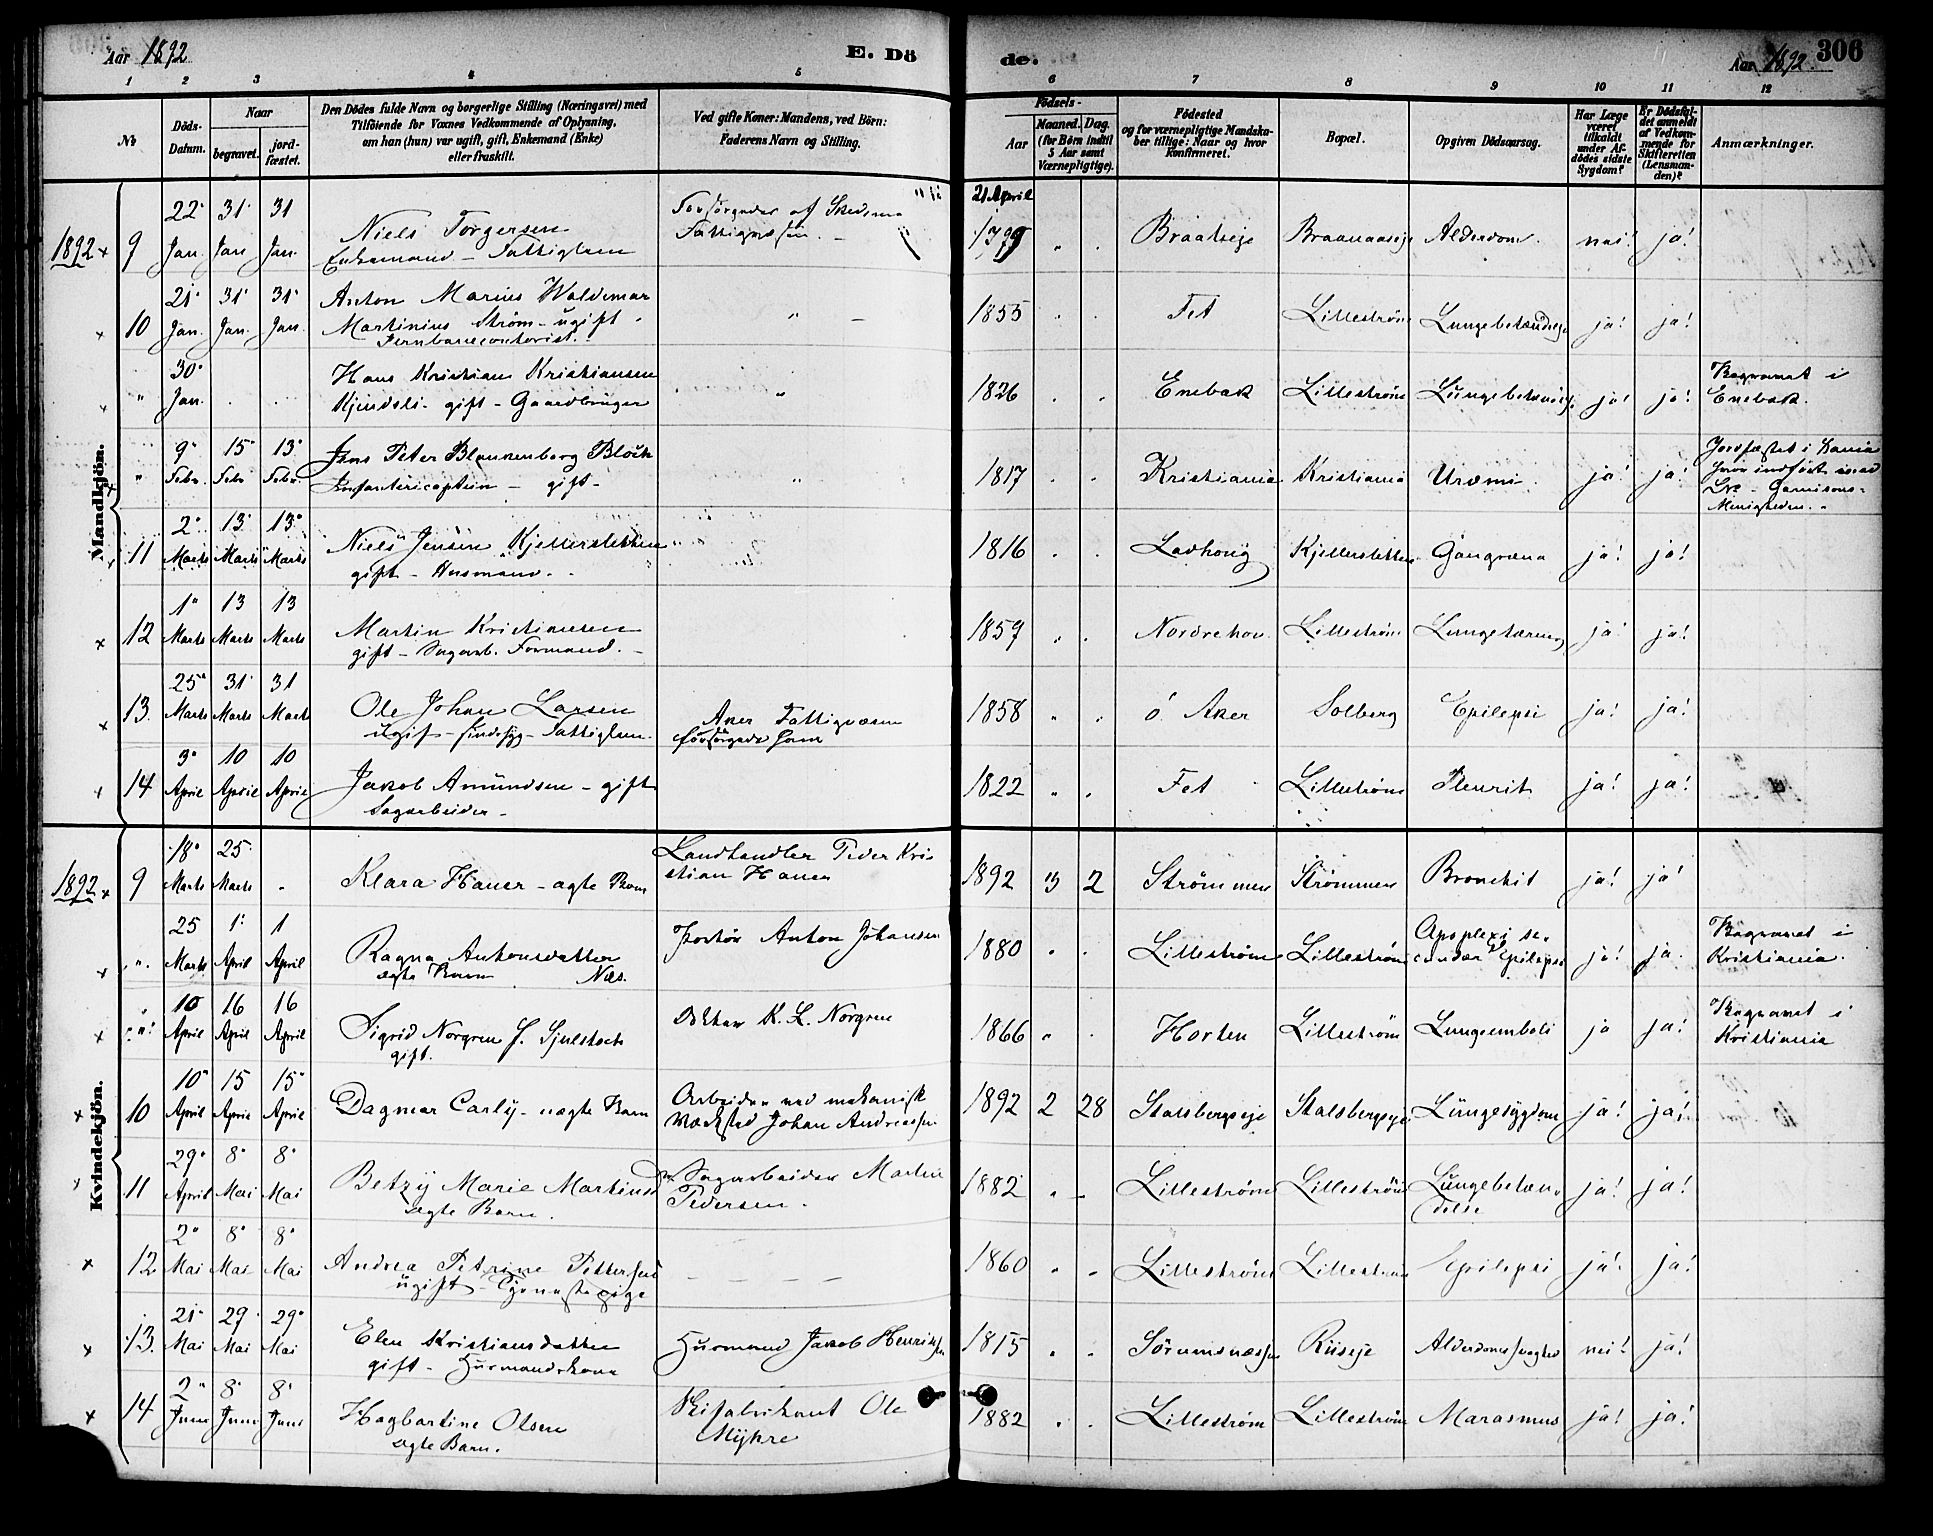 Aar 1892
E. Dö
de.
Aar 1892.
306
1 2 3 4 5 6 7 8 9 10 11 12
No
Döds-Datum.
Naar
begravet.
jordfæstet.
Den Dödes fulde Navn og borgerlige Stilling (Næringsvei) med
Tilföiende for Voxnes Vedkommende af Oplysning,
om han (hun) var ugift, gift, Enkemand (Enke)
eller fraskilt.
Ved gifte Koner: Mandens, ved Börn:
Faderens Navn og Stilling.
Födsels-
Aar
Maaned. Dag.
(for Börn indtil
5 Aar samt
Værnepligtige).
Födested
og for værnepligtige Mandska-
ber tillige: Naar og hvor
konfirmeret.
Bopæl.
Opgiven Dödsaarsag.
Har Læge
været
tilkaldt
under Af-
dödes sidste
Sygdom?
Er Dödsfal-
det anmeldt
af Vedkom-
mende for
Skifteretten
(Lensman-
den)?
Anmærkninger.
Mandkjön.
1892 9 22 Jan. 31 Jan 31 Jan.
Niels Torgersen
Enkemand - Fattiglem
Forsørgedes af Skedsmo
Fattigvæsen.
21 April
1799 Braateeje Braanaaseje Alderdom. nei! ja!
10 21 Jan. 31 Jan. 31 Jan.
Anton Marius Waldemar
Martinius Strøm - ugift
Jernbanecontorist.
1855 Fet Lillestrøm Lungebetændelse ja! ja!
" 30 Jan.
Hans Kristian Kristiansen
Kjindsli - gift - Gaardbruger
1826 Enebak Lillestrøm Lungebetændelse ja! ja!
Begravet i
Enebak.
" 9 Febr. 15 Febr 13 Febr
Jens Peter Blankenborg Bloch
Infantericaptein - gift -
1817 Kristiania Kristiania Uræmi ja! ja!
Jordfæstet i
hvor indført
Menigheden.
11 2 Marts 13 Marts 13 Marts
Niels Jensen Kjellersletten
gift - Husmand.
1816 Kjellersletten Gangræna ja! ja!
12 1 Marts 13 Marts 13 Marts
Martin Kristiansen
gift - Sagarb. Formand.
1859 Nordrehov Lillestrøm Lungetæring ja! ja!
13. 25 Marts 31 Marts 31 Marts
Ole Johan Larsen
ugift - sindssyg - Fattiglem.
Aker Fattigvæsen
forsørgede ham
1858 Ø. Aker Solberg Epilepsi ja! ja!
14 3 April 10 April 10 April
Jakob Amundsen - gift
Sagarbeider -
1822 Fet Lillestrøm Pleurit ja! ja!
Kvindekjön.
1892 9 18 Marts 25 Marts
Klara Hauer - ægte Barn
Landhandler Peder Kri-
stian Hauer
1892 2 Strømmen Strømmen Bronchit ja! ja!
" 25 Marts 1 April 1 April
Ragna Antonsdatter
ægte Barn Næs.
Portør Anton Johansen
1880 Lillestrøm Lillestrøm Apoplexi se-
cundær Epilepsi ja! ja
Begravet i
Kristiania.
" 10 April 16 April 16 April
Sigrid Norgren f. Sjulstock
gift.
Doktor K. L. Norgren
1866 Horten Lillestrøm Lungeemboli ja ja!
Begravet i
Kristiania
10 10 April 15 April 15 April
Dagmar Carly - uægte Barn
Arbeider ved mekanisk
Værksted Johan Andreassen
1892 2 28 Stalsbergseje Stalsbergseje Lungesygdom ja! ja!
11 29 April 8 Mai 8 Mai
Betzy Marie Martinsd.
ægte Barn.
Sagarbeider Martin
Pedersen.
1882 Lillestrøm Lillestrøm Lungebetæn-
delse ja! ja!
12 2 Mai 8 Mai 8 Mai
Andrea Petrine Pettersen
ugift - Tjenestepige
1860 Lillestrøm Lillestrøm Epilepsi ja! ja!
13. 21 Mai 29 Mai 29 Mai
Elen Kristiansdatter
gift - Husmandskone
Husmand Jakob Henriksen
1815 Sørumsnæssen Riiseje Alderdomssvaghed nei! ja!
14 2 Juni 8 Juni 8 Juni
Hagbartine Olsen
ægte Barn.
Skifabrikant Ole
Myhre
1882 Lillestrøm Lillestrøm Marasmus ja! ja!